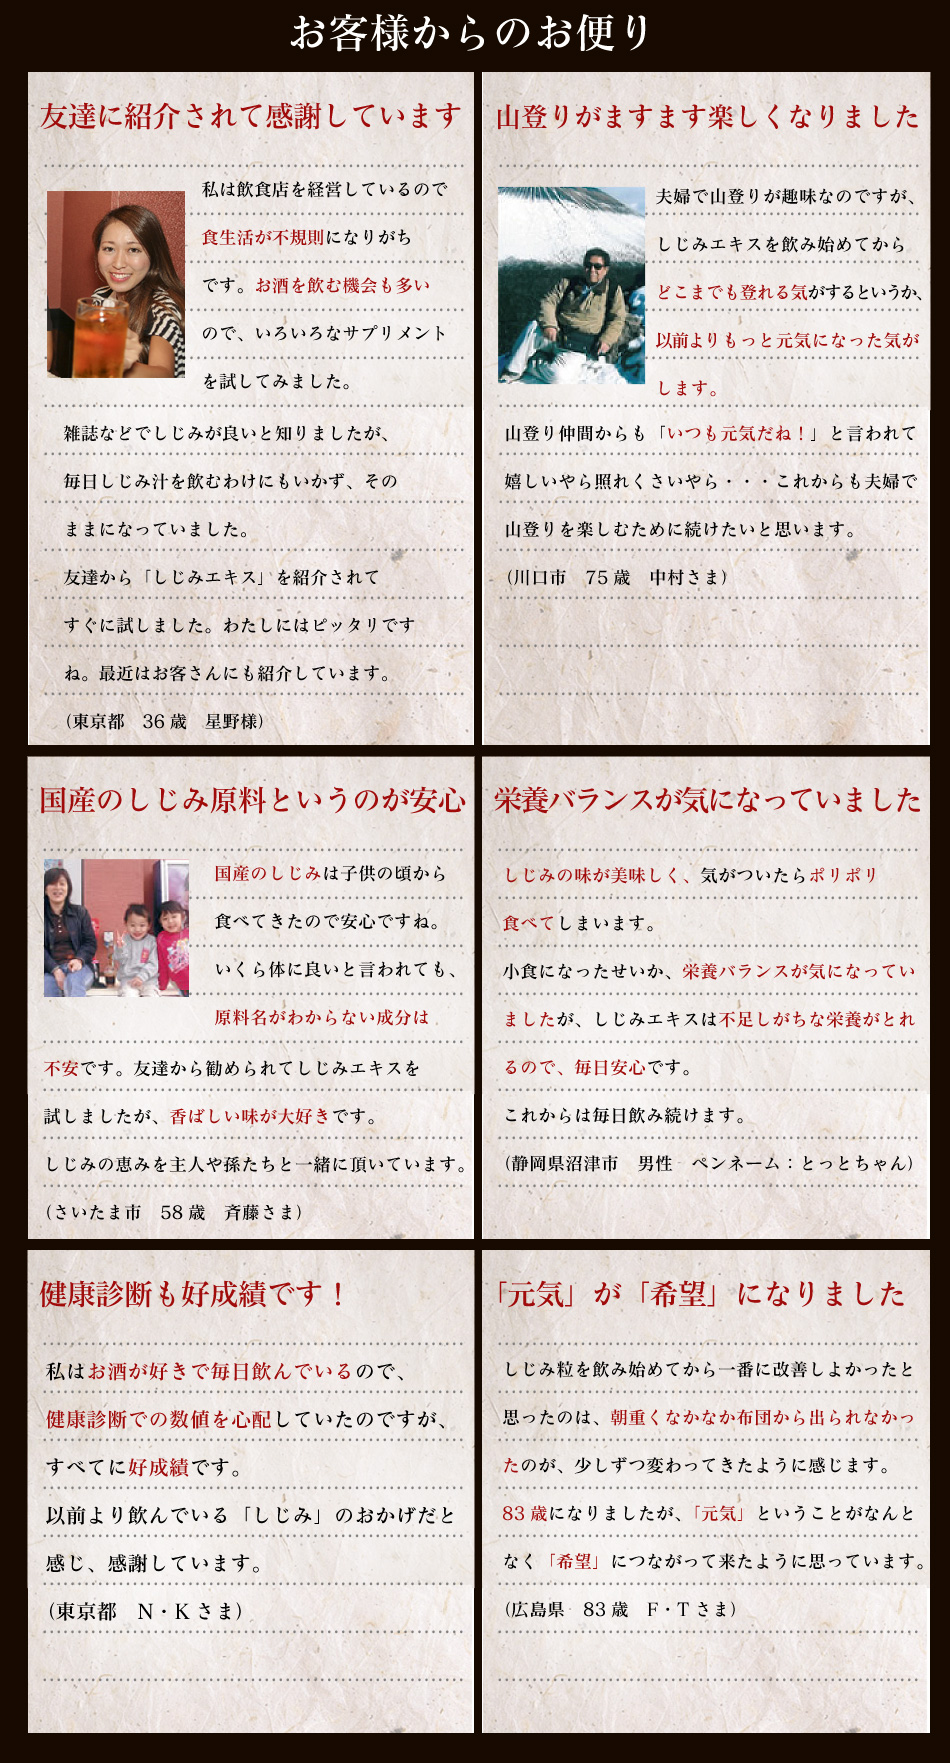 お客様からのお便り
友達に紹介されて感謝しています
私は飲食店を経営しているので
食生活が不規則になりがち
です。お酒を飲む機会も多い
ので、いろいろなサプリメント
を試してみました。
雑誌などでしじみが良いと知りましたが、
毎日しじみ汁を飲むわけにもいかず、その
ままになっていました。
友達から「しじみエキス」を紹介されて
すぐに試しました。わたしにはピッタリです
ね。最近はお客さんにも紹介しています。
(東京都　36 歳　星野様)
山登りがますます楽しくなりました
夫婦で山登りが趣味なのですが、
しじみエキスを飲み始めてから
どこまでも登れる気がするというか、
以前よりもっと元気になった気が
します。
山登り仲間からも「いつも元気だね！」と言われて
嬉しいやら照れくさいやら・・・これからも夫婦で
山登りを楽しむために続けたいと思います。
(川口市　75 歳　中村さま)
国産のしじみ原料というのが安心
国産のしじみは子供の頃から
食べてきたので安心ですね。
いくら体に良いと言われても、
原料名がわからない成分は
不安です。友達から勧められてしじみエキスを
試しましたが、香ばしい味が大好きです。
しじみの恵みを主人や孫たちと一緒に頂いています。
(さいたま市　58 歳　斉藤さま)
栄養バランスが気になっていました
しじみの味が美味しく、気がついたらポリポリ
食べてしまいます。
小食になったせいか、栄養バランスが気になってい
ましたが、しじみエキスは不足しがちな栄養がとれ
るので、毎日安心です。
これからは毎日飲み続けます。
(静岡県沼津市　男性　ペンネーム：とっとちゃん)
健康診断も好成績です！
私はお酒が好きで毎日飲んでいるので、
健康診断での数値を心配していたのですが、
すべてに好成績です。
以前より飲んでいる「しじみ」のおかげだと
感じ、感謝しています。
(東京都　N・K さま)
「元気」が「希望」になりました
しじみ粒を飲み始めてから一番に改善しよかったと
思ったのは、朝重くなかなか布団から出られなかっ
たのが、少しずつ変わってきたように感じます。
83 歳になりましたが、「元気」ということがなんと
なく「希望」につながって来たように思っています。
(広島県　83 歳　F・T さま)